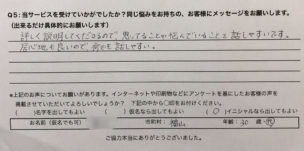 Q5:当サービスを受けていかがでしたか?同じ悩みをお持ちの、お客様にメッセージをお願いします。
(出来るだけ具体的にお願いします。)
詳しく説明してくださるので、思ってることや悩んでいること話しやすいです。
居心地も良いので、何でも話しやすい。
※上記のお声についてお願いがあります。インターネットや印刷物などにアンケートを基にしたお客様の声を
掲載させていただいてよろしいでしょうか? 下記の中から○印をお付けください。
( )名字を出してもよい ( )仮名なら出してもよい (○)イニシャルなら出してもよい
お名前(仮名でも可) 市町村: 年齢:30歳
ご協力本当にありがとうございました。